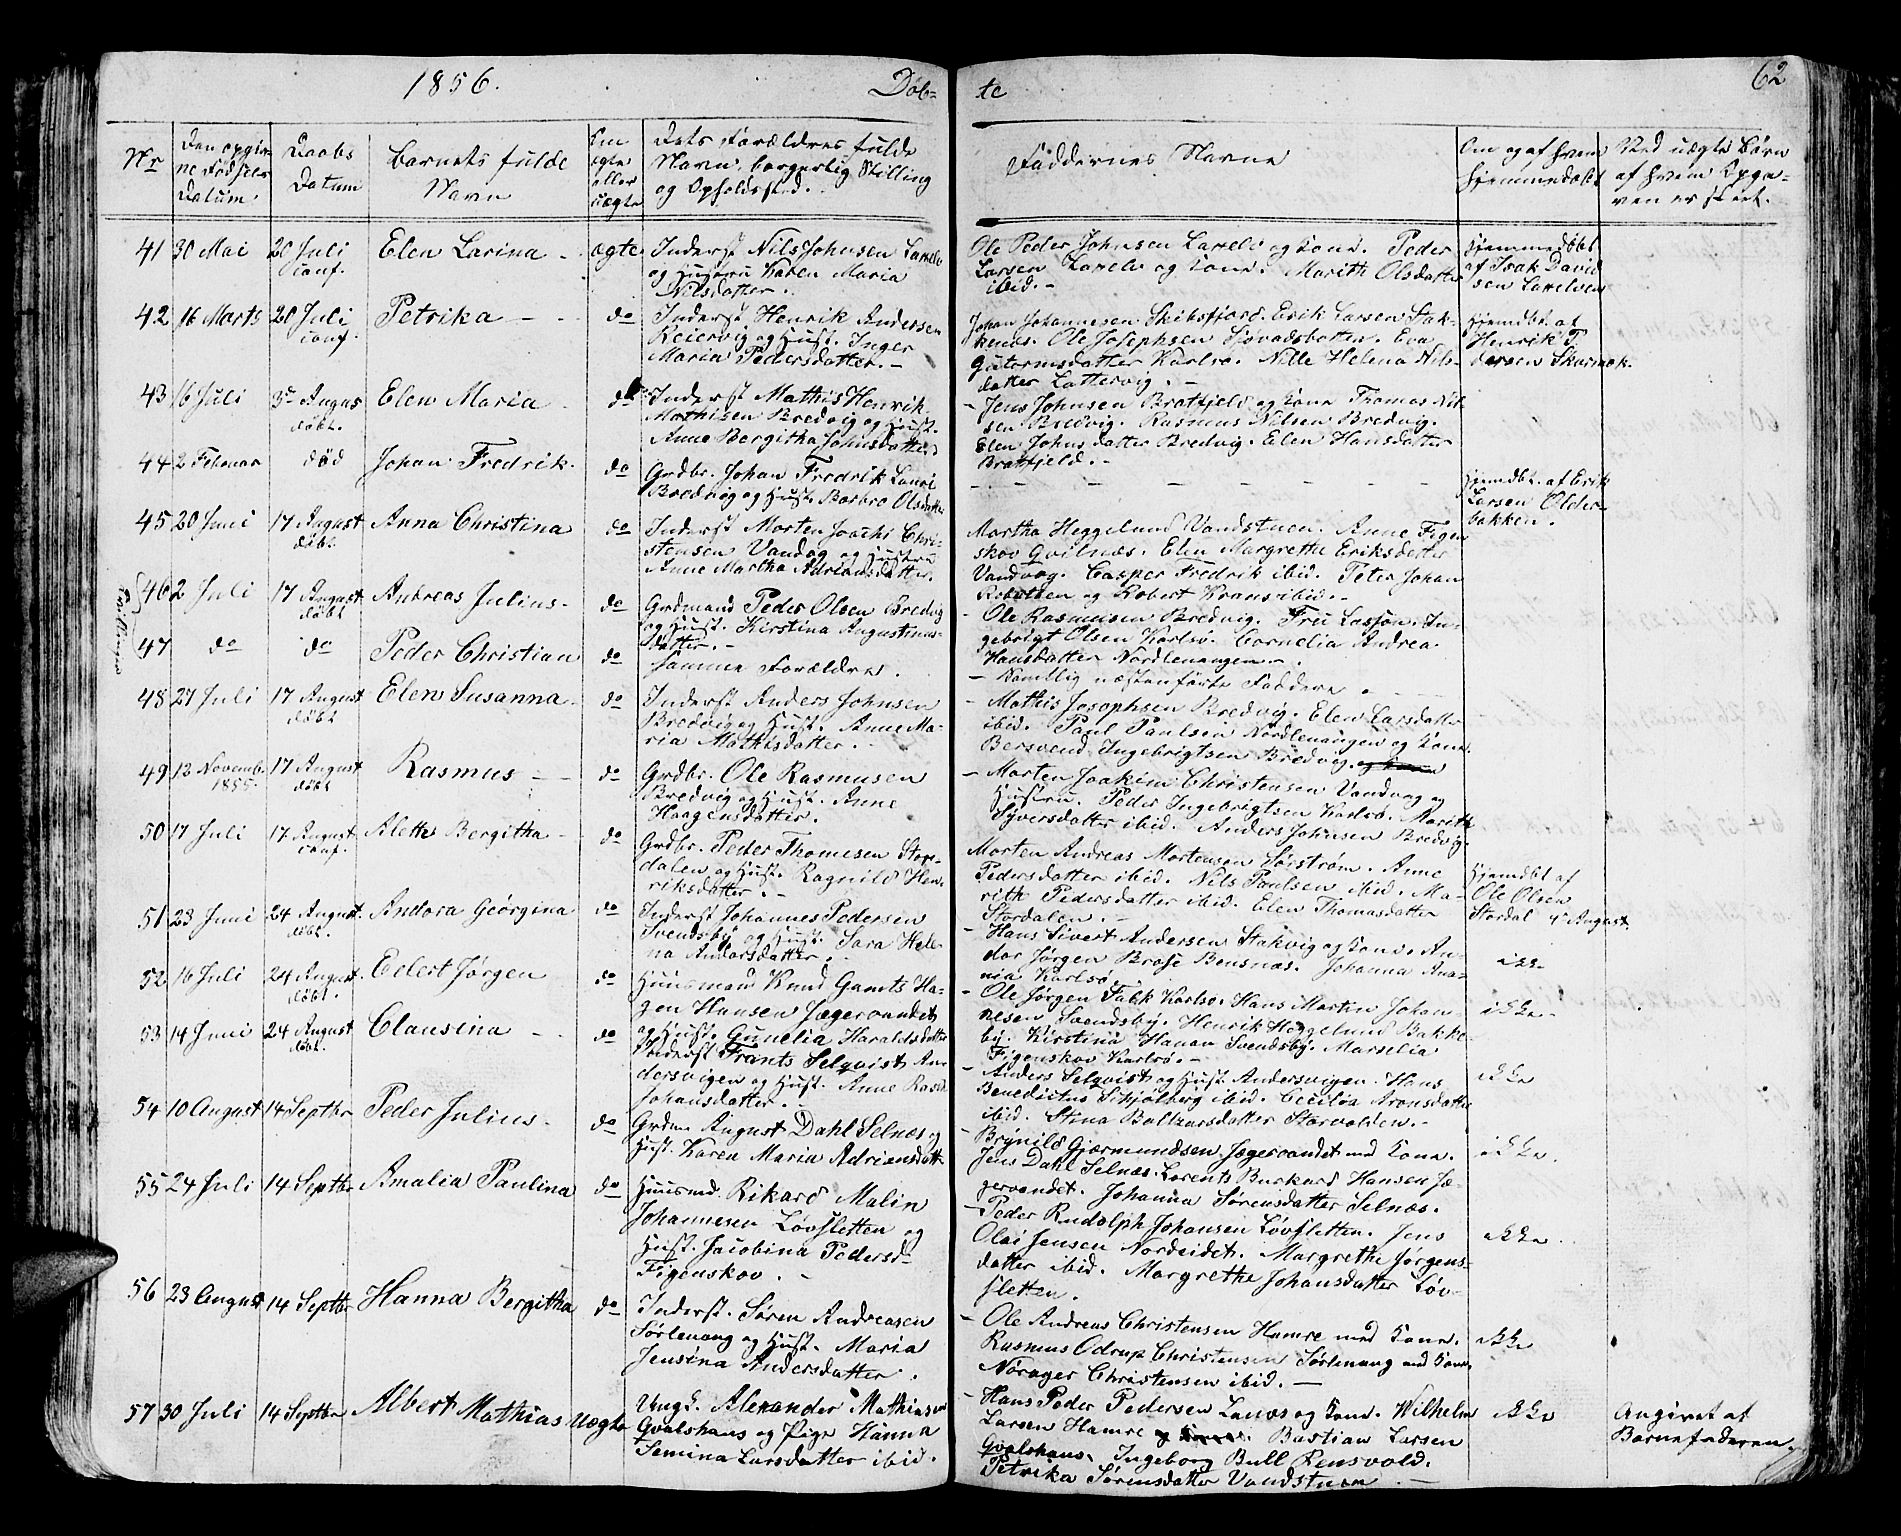 1856.
Døb-
te
62
Nr
Den opgiv-
ne Fødsels
Datum.
Daabs
Datum
Barnets fulde
Navn
Om
ægte
eller
uægte
Dets Forældres fulde
Navn, borgerlig Stilling
og Opholdssted.
Faddernes Navne
Om og af hvem
hjemmedøbt
Ved uægte Børn
af hvem Opga-
ven er skeet.
41 30 Mai 20 Juli
conf.
Elen Larina
ægte
Inderst Nils Johnsen
og Hustru Karen Maria
Nilsdatter.
Ole Peder Johnsen og Kone. Peder
Larsen og Kone. Marith Olsdatter
ibid.
Hjemmedøbt
af Isak David
sen
42 16 Marts 20 Juli
conf.
Petrika
do
Inderst Henrik Andersen
Reiervig og Hust. Inger
Maria Pedersdatter.
Johan Johannesen Skibsfjord. Erik Larsen
Ole Josephsen. Eva
Gutormsdatter Karlsø. Nille Helena Nils-
datter Lattervig.
Hjemdbt af
Henrik P
43 16 Juli 3 Augus
døbt.
Elen Maria
do
Inderst Mathis Henrik
Mathisen Bredvig og Hust.
Anne Bergitha Johnsdatter
Jens Johnsen Bratfjeld og Kone Thomas Nil-
sen Bredvig. Rasmus Nilsen Bredvig.
Elen Johnsdatter Bredvig. Elen Hansdatter
Bratfjeld.
44 2 Februar død Johan Fredrik.
do
Grdbr. Johan Fredrik
Bredvig og Hust. Barbro Olsdatter
Hjemdbt. af Erik
Larsen Older-
bakken.
45 20 Juni 17 August
døbt
Anna Christina
do
Inderst Morten Joachi Chri-
stensen Vandvag og Hustru
Anne Martha Adriansdatter.
Martha Heggelund Vandstuen. Anne Figen
skov Gvilnæs. Elen Margrethe Eriksdatter
Vandvag. Casper Fredrik ibid. Peter Johan
og Robert ibid.
Tvillinger
46 2 Juli 17 August
døbt
Andreas Julius
do
Grdmand Peder Olsen Bredvig
og Hust. Kirstina Augustinus-
datter.
Ole Rasmusen Bredvig. Fru Lassen. In-
gebrigt Olsen Karlsø. Cornelia Andrea
Hansdatter Nordlenangen.
47 do do Peder Christian
do
Samme Forældre.
Samtlig næstanførte Faddere
48 27 Juli 17 August
døbt
Elen Susanna
do
Inderst Anders Johnsen
Bredvig og Hust. Anne Ma-
ria Mathisdatter.
Mathis Josephsen Bredvig. Elen Larsdatter
ibid. Paul Paulsen Nordlenangen og Kone.
Bersvend Ingebrigtsen Bredvig
49 12 Novemb.
1855.
17 August
døbt
Rasmus
do
Grdbr. Ole Rasmusen
Bredvig og Hust. Anne
Haagensdatter.
Morten Joakim Christensen Vandvag og
Hustru. Peder Ingebrigtsen Karlsø. Marith
Syversdatter ibid. Anders Johnsen Bredvig.
50 17 Juli 17 August
conf.
Alette Bergitha
do
Grdbr. Peder Thomesen Stor-
dalen og Hust. Ragnild Hen-
riksdatter.
Morten Andreas Mortensen Sørstrøm. Anne
Pedersdatter ibid. Nils Paulsen ibid. Ma-
rith Pedersdatter ibid. Elen Thomasdatter
Stordalen.
Hjemdbt af
Ole Olsen
Stordal 4 August
51 23 Juni 24 August
døbt.
Andora Georgina
do
Inderst Johannes Pedersen
Svendsby og Hust. Sara Hele-
na Andersdatter.
Hans Sivert Andersen Stakvig og Kone. An-
dor Jørgen Brose Bensnæs. Johanna Ana-
nia Karlsø
ikke
52 16 Juli 24 August
døbt.
Edert Jørgen
do
Huusmand Knud Gamts Ha-
gen Hansen Jægervandet
og Hust. Gunelia Haraldsdatter
Ole Jørgen Falk Karlsø. Hans Martin Johan-
nesen Svendsby. Henrik Heggelund Bakke-
by. Kirstina Hanan Svendsby. Marselia
Figenskov Karlsø.
ikke
53 14 Juni 24 August
døbt
Clausina
do
Inderst Frants Selqvist An-
dersvigen og Hust. Anne
Johansdatter.
Anders Selqvist og Hust Andersvigen. Hans
Benedictus Skjølberg ibid. Cecilia Aronsdatter
ibid. Stina Baltzarsdatter Storvolden.
ikke
54 10 August 14 Septbr Peder Julius.
do
Grdm August Dahl Selnæs og
Hust. Karen Maria Adriansdatt
Brynild Gjærmundsen Jægervandet med Kone.
Jens Dahl Selnæs. Lorents Burkard Hansen Jæ-
gervandet. Johanna Sørensdatter Selnæs.
ikke.
55 24 Juli 14 Septbr Amalia Paulina
do
Huusmd. Rikard Malin
Johannesen Løvsletten og
Hust. Jacobina Pedersd
Figenskov.
Peder Rudolph Johansen Løvsletten. Jens
Olai Jensen Nordeidet. Margrethe Jørgens-
datter ibid. Margrethe Johansdatter Løv-
sletten.
ikke
56 23 August 14 Septbr Hanna Bergitha
do
Inderst. Søren Andreasen
Sørlenang og Hust. Maria
Jensina Andersdatter.
Ole Andreas Christensen Hamre med Kone.
Rasmus Odrup Christensen Sørlenang med Kone
Norager Christensen ibid.
ikke
57 30 Juli 14 Septbr Albert Mathias
Uægte
Ungk. Alexander Mathiasen
Gvalshaus og Pige Hanna
Semina Larsdatter ibid.
Hans Peder Pedersen Lanæs og Kone. Wilhelm
Larsen Hamre. Bastian Larsen
Gvalshaus. Ingeborg Bull Rensvold.
Petrika Sørensdatter Vandstuen
ikke
Angivet af
Barnefaderen.